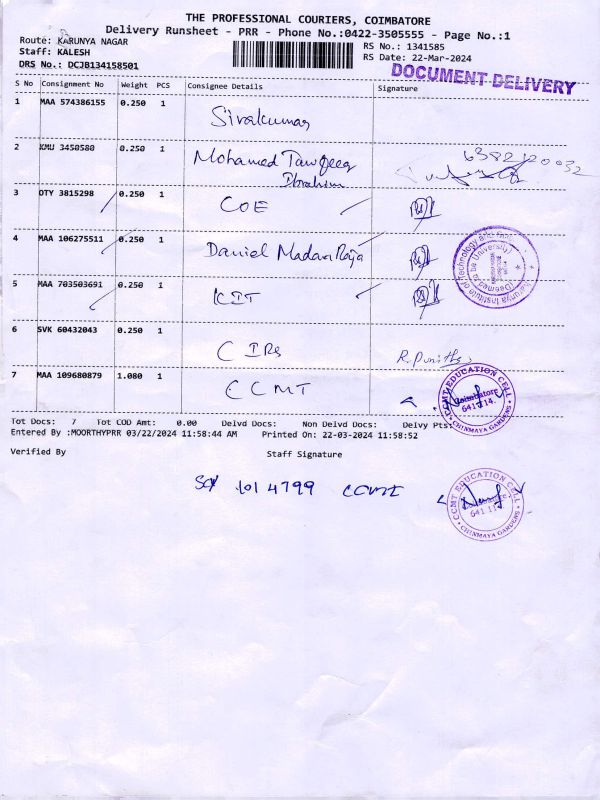 THE PROFESSIONAL COURIERS, COIMBATORE
Delivery Runsheet - PRR - Phone No.:0422-3505555 - Page No.:1
Route: KARUNYA NAGAR
Staff: KALESH
DRS No.: DCJB134158501
RS No.: 1341585
RS Date: 22-Mar-2024
DOCUMENT DELIVERY
S No Consignment No Weight PCS Consignee Details Signature
1 MAA 574386155 0.250 1 Sivakumar
2 KMU 3450580 0.250 1 Mohamed Tawfeeq Ibrahim 6382120032
3 OTY 3815298 0.250 1 COE
4 MAA 106275511 0.250 1 Daniel Madan Raja
Karunya Institute of Technology and
(Deemed to be University)
5 MAA 703503691 0.250 1 KIT
6 SVK 60432043 0.250 1 CIRS R. Punitha
7 MAA 109680879 1.080 1 CCMT
CCMT EDUCATION CELL
Coimbatore
641 114.
CHINMAYA GARDENS
Tot Docs: 7 Tot COD Amt: 0.00 Delvd Docs: Non Delvd Docs: Delvy Pts:
Entered By :MOORTHYPRR 03/22/2024 11:58:44 AM Printed On: 22-03-2024 11:58:52
Verified By Staff Signature
1014799 CCMT
CCMT EDUCATION CELL
641 114
CHINMAYA GARDENS